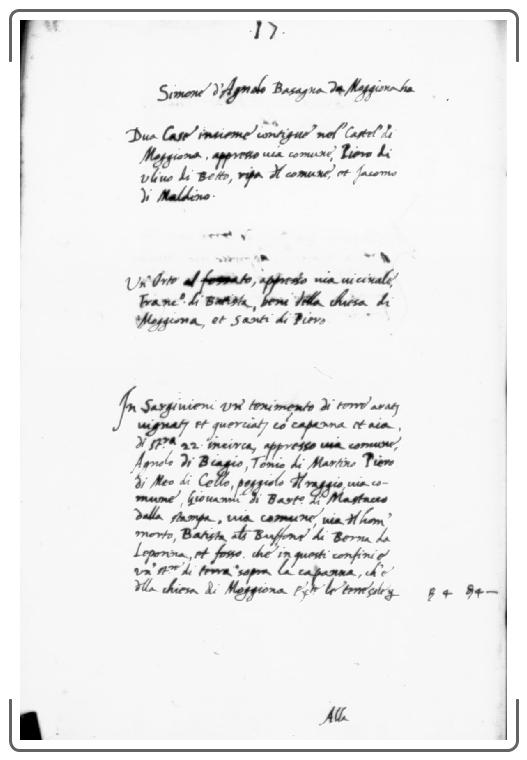 ·17·
Simone d'Agnolo Basagna da Moggiona ha
Dua Case insieme contigue nel Castel di
Moggiona, appresso via comune, Piero di
ulivo di Betto, ripa del comune, et Jacomo
di Maldino.
Un' Orto al fossato, appresso via vicinale,
Franc.º di Batista, beni della chiesa di
Moggiona, et Santi di Piero
In Sargivieni un' tenimento di terre
et co' capanna et aia,
di 22. incirca, appresso via comune,
Agnolo di Biagio, Tonio di Martino Piero
di Meo di Cello, poggiolo del raggio, via co-
mune, Giovanni di Bart.º di Mastaccio
dalla stampa, via comune, via del hom'
morto, Batista, als Buffone di Berna da
Leponna, et fosso. che in questi confini e
un' di terra sopra la capanna, ch'e
dlla chiesa di Moggiona le terre
4 4 —
Alla